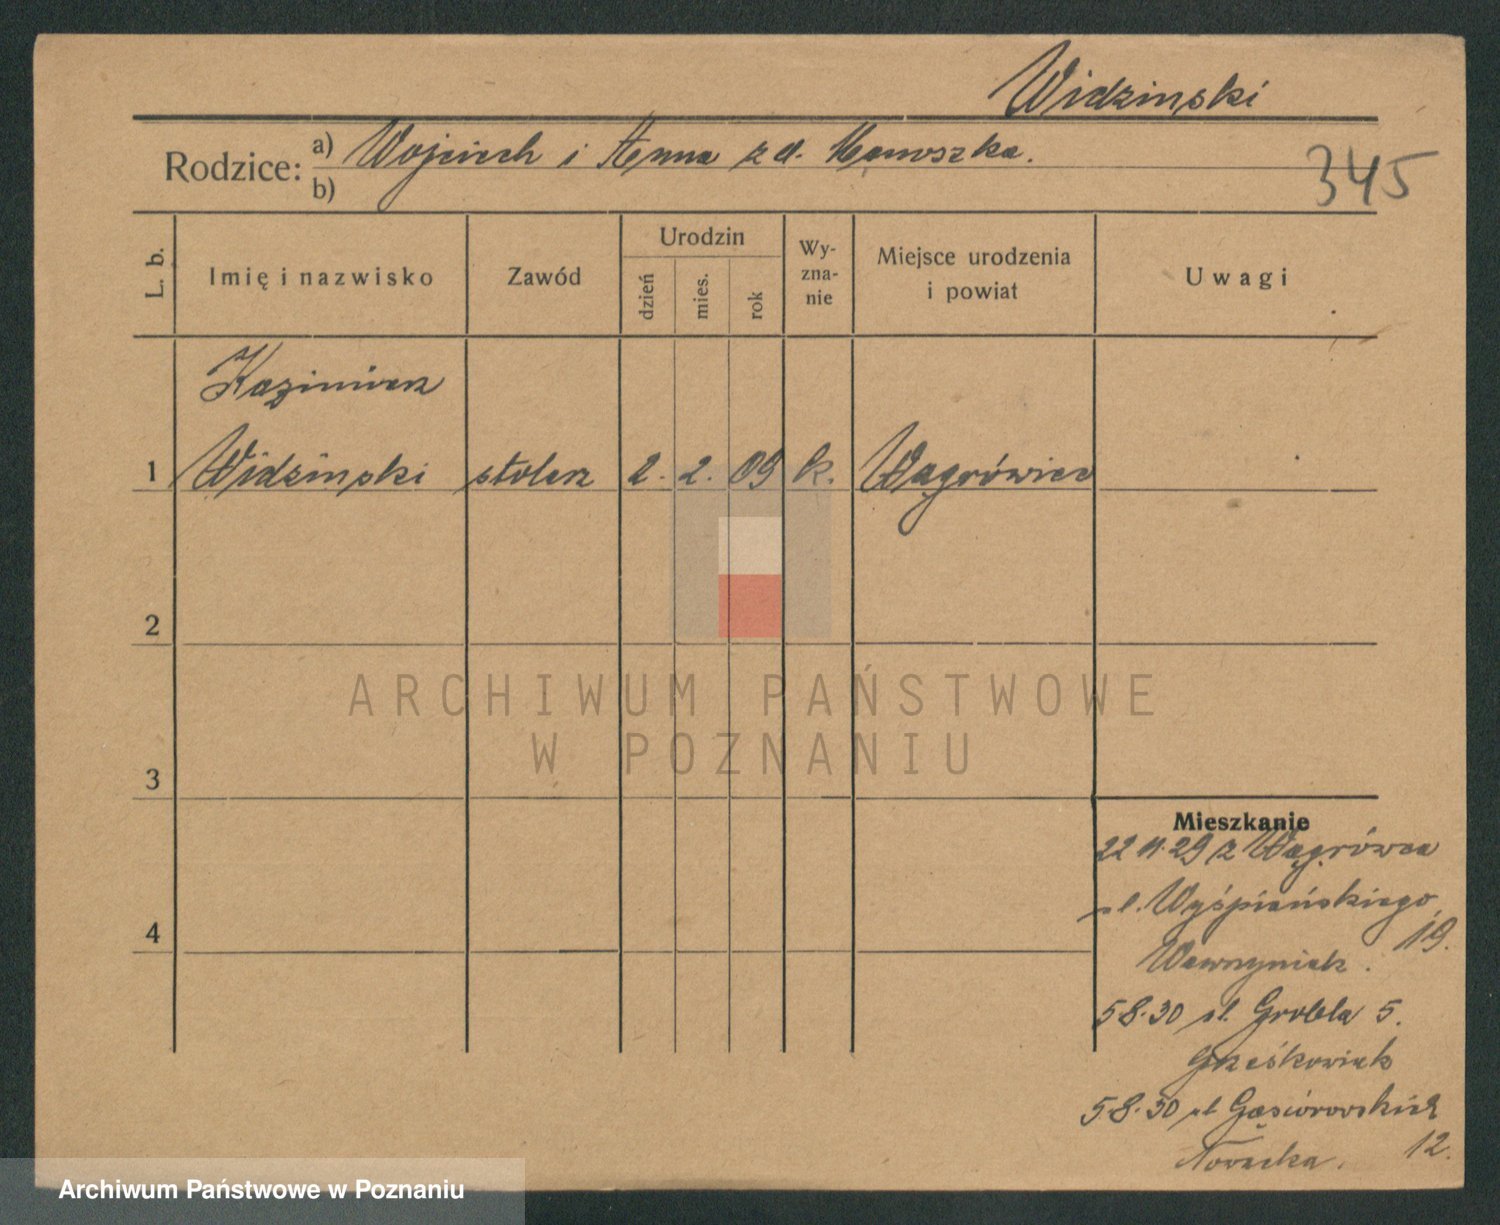 Widzinski
Rodzice: a) Wojciech i Anna z d.
b)
345
L. b.
Imię i nazwisko
Zawód
Urodzin
dzień
mies.
rok
Wy-
zna-
nie
Miejsce urodzenia
i powiat
Uwagi
Kazimierz
1 Widzinski stolarz 2. 2. 09 k. Wągrówiec
2
3
4
Mieszkanie
22 11. 29 z Wągrówca
ul. Wyśpiańskiego
19.
Wawrzyniak.
5·8·30 ul. Grobla 5.
Grześkowiak
5·8·30 ul Gąsiorowskich
12.
Nowacka.
ARCHIWUM PAŃSTWOWE
W POZNANIU
Archiwum Państwowe w Poznaniu